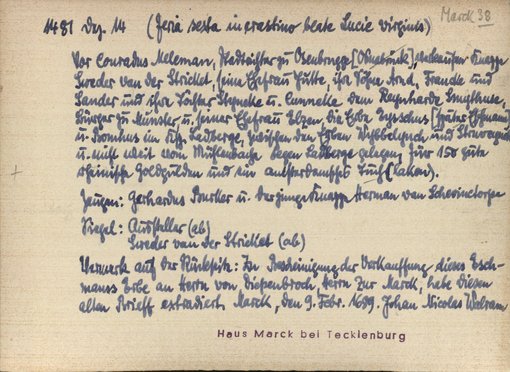 1481 Dez. 14 (feria sexta in crastino beate Lucie virginis) Marck 38
Vor Conradus Meleman, Stadtrichter zu Osenbrugge [Osnabrück], verkaufen Knappe
Sweder van der Stricket, seine Ehefrau Jutte, ihre Söhne Arnd, Francke und
Sander und ihre Töchter Styneke u. Cunneke dem Reynharde
Bürger zu Münster u. seiner Ehefrau Elzen, die Erbe
u. im Kspl. Ladberge, zwischen den Erben und
u. nicht weit vom Mühlenbache gegen Ladberge gelegen, für 150 gute
rheinische Goldgulden und ein Tuch (laken).
Zeugen: Gerhardus u. der junge Knappe Herman van
Siegel: Aussteller (ab)
Sweder van der Stricket (ab)
Vermerk auf der Rückseite: In Bescheinigung der Verkauffung dieses Esch-
manns Erbe an Herrn von Diepenbroch, Herrn zur Marck, habe diesen
alten Brieff extradiert. Marck, den 9. Febr. 1689. Johan Nicolas
Haus Marck bei Tecklenburg